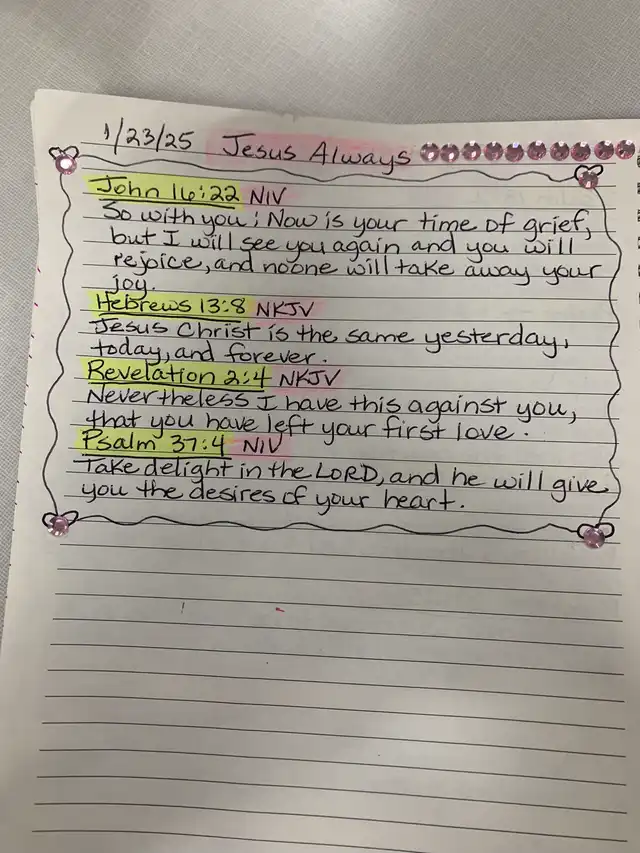 1/23/25 Jesus Always
John 16:22 NIV
So with you: Now is your time of grief,
but I will see you again and you will
rejoice, and noone will take away your
joy.
Hebrews 13:8 NKJV
Jesus Christ is the same yesterday,
today, and forever.
Revelation 2:4 NKJV
Nevertheless I have this against you,
that you have left your first love.
Psalm 37:4 NIV
Take delight in the LORD, and he will give
you the desires of your heart.